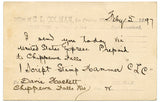 Feby 5 1897
I send you today via
United States Express Prepaid
to Chippewa Falls
1 Script Stamp Hammer "C L C"
Davis Hackett
Chippewa Falls Wis